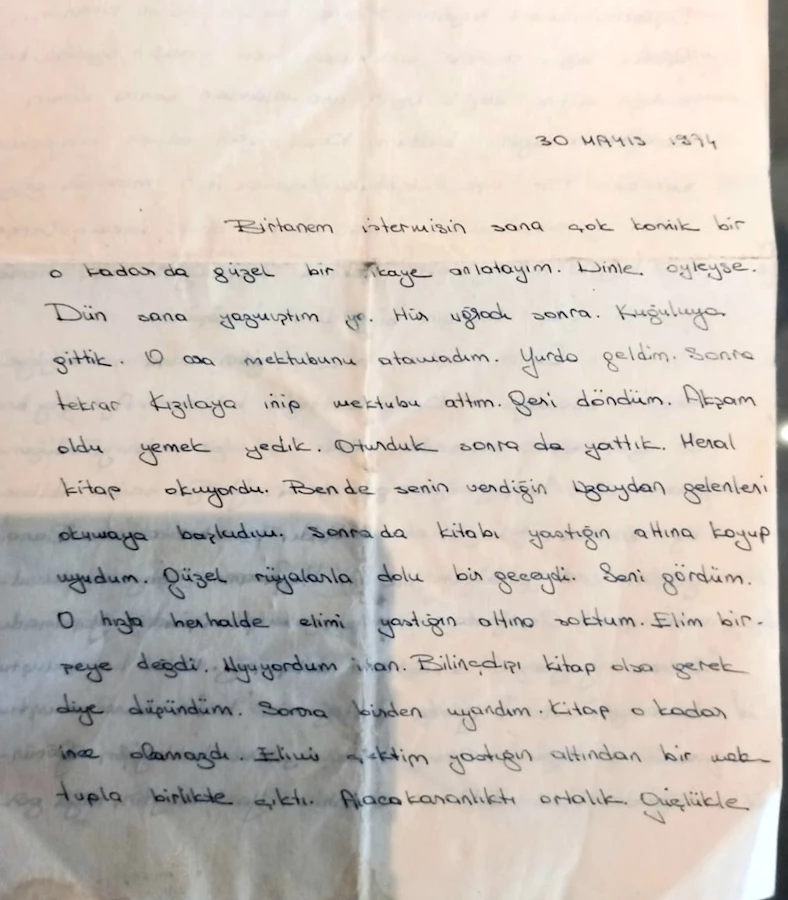 30 MAYIS 1974
Birtanem istermisin sana çok komik bir
o kadar da güzel bir hikaye anlatayım. Dinle öyleyse.
Dün sana yazmıştım ya. Hür uğradı sonra. Kuğuluya
gittik. O ara mektubunu atamadım. Yurda geldim. Sonra
tekrar Kızılaya inip mektubu attım. Geri döndüm. Akşam
oldu yemek yedik. Oturduk sonra da yattık. Meral
kitap okuyordu. Bende senin verdiğin Uzaydan gelenleri
okumaya başladım. Sonra da kitabı yastığın altına koyup
uyudum. Güzel rüyalarla dolu bir geceydi. Seni gördüm.
O hızla herhalde elimi yastığın altına soktum. Elim bir-
şeye değdi. Uyuyordum inan. Bilinçdışı kitap olsa gerek
diye düşündüm. Sonra birden uyandım. Kitap o kadar
ince olamazdı. Elimi çektim yastığın altından bir mek-
tupla birlikte çıktı. Alacakaranlıktı ortalık. Güçlükle